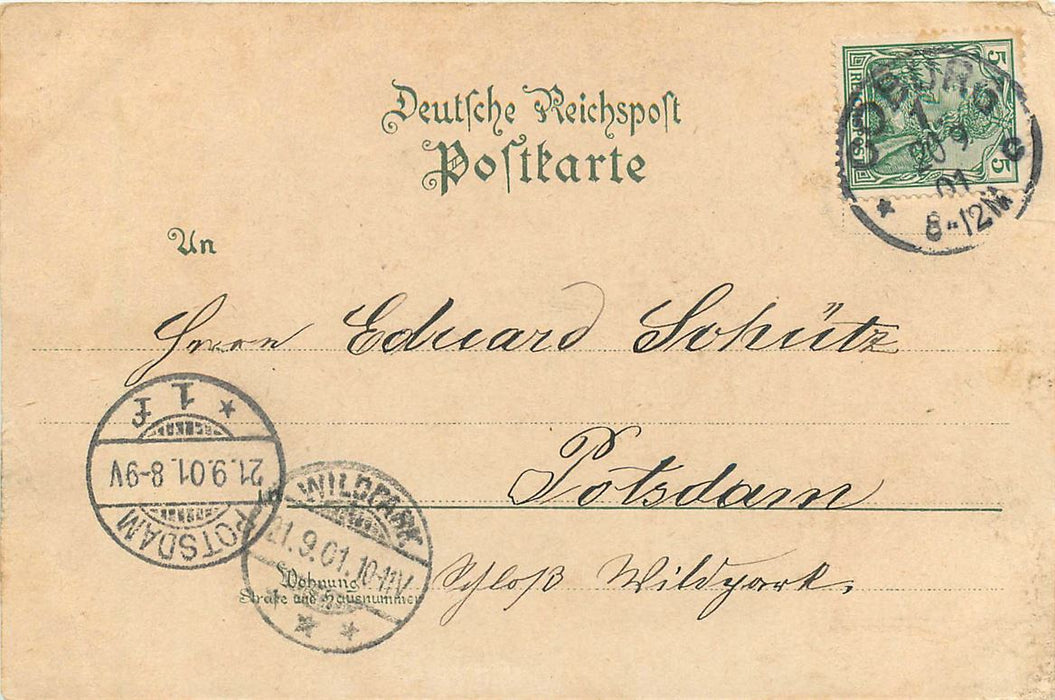 Deutsche Reichspost
Postkarte
5
5
COBURG
1
20 9
01
8-12N
c
An
Herrn Eduard Schütz
Potsdam
Wohnung
Straße und Hausnummer
Schloß Wildpark.
POTSDAM
21.9.01.8-9V
* 1 f
WILDPARK
21.9.01.10-11V
* *